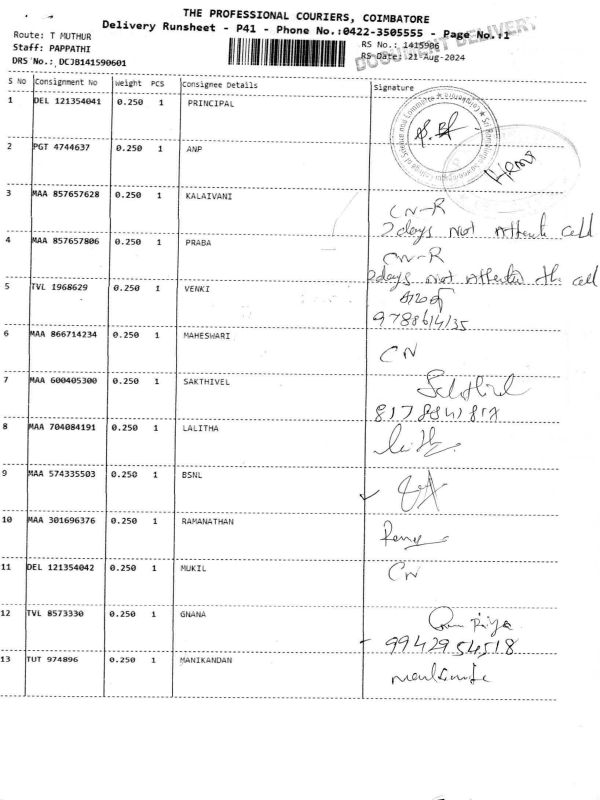 THE PROFESSIONAL COURIERS, COIMBATORE
Delivery Runsheet - P41 - Phone No.:0422-3505555 - Page No.:1
DOCUMENT DELIVERY
Route: T MUTHUR
Staff: PAPPATHI
DRS No.: DCJB141590601
RS No.: 1415906
RS Date: 21-Aug-2024
S No Consignment No weight PCS Consignee Details Signature
1 DEL 121354041 0.250 1 PRINCIPAL
2 PGT 4744637 0.250 1 ANP
3 MAA 857657628 0.250 1 KALAIVANI CN-R
2 days not attend call
4 MAA 857657806 0.250 1 PRABA CN-R
2 days not attended the call
5 TVL 1968629 0.250 1 VENKI
9788614135
6 MAA 866714234 0.250 1 MAHESWARI CN
7 MAA 600405300 0.250 1 SAKTHIVEL
8 MAA 704084191 0.250 1 LALITHA
9 MAA 574335503 0.250 1 BSNL
10 MAA 301696376 0.250 1 RAMANATHAN
11 DEL 121354042 0.250 1 MUKIL CN
12 TVL 8573330 0.250 1 GNANA
9942954518
13 TUT 974896 0.250 1 MANIKANDAN